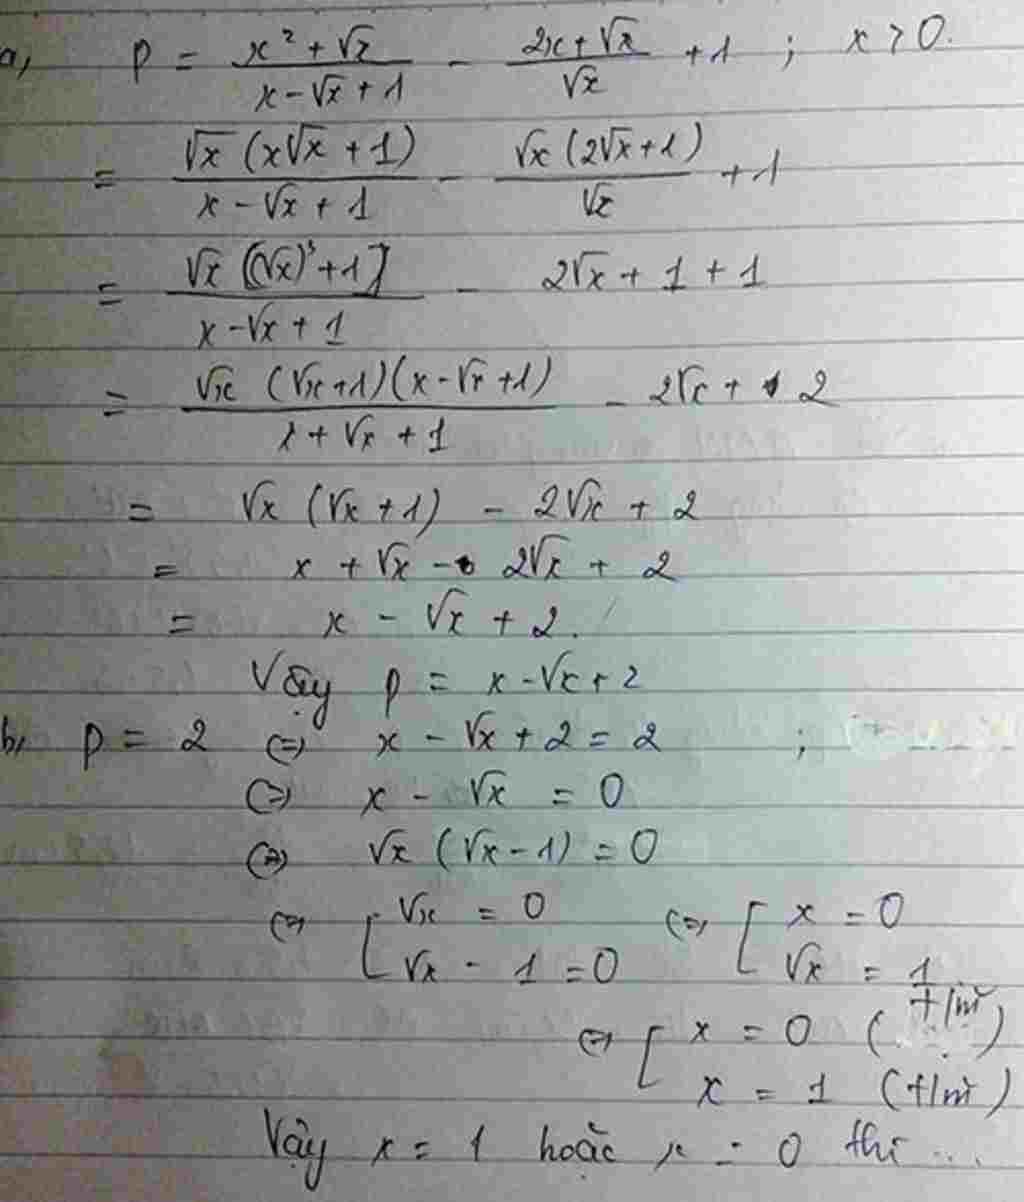 a, P = (x² + √x)/(x - √x + 1) - (2x + √x)/√x + 1 ; x > 0.
= √x (x√x + 1)/(x - √x + 1) - √x (2√x + 1)/√x + 1
= √x [(√x)³ + 1]/(x - √x + 1) - 2√x + 1 + 1
= √x (√x + 1)(x - √x + 1)/(x + √x + 1) - 2√x + 2
= √x (√x + 1) - 2√x + 2
= x + √x - 2√x + 2
= x - √x + 2.
Vậy P = x - √x + 2
b, P = 2 (=) x - √x + 2 = 2 ;
(=) x - √x = 0
(=) √x (√x - 1) = 0
(=) [ √x = 0 (=) [ x = 0
√x - 1 = 0 √x = 1
(=) [ x = 0 (t/m)
x = 1 (t/m)
Vậy x = 1 hoặc x = 0 thì ...